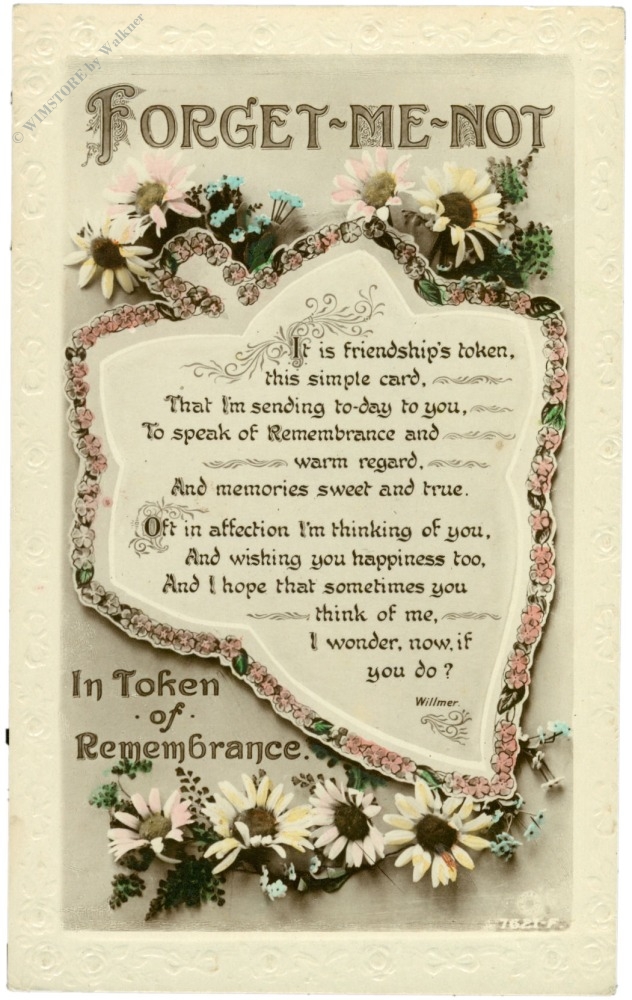 © WIMSTORE by Walkner
FORGET-ME-NOT
It is friendship's token,
this simple card,
That I'm sending to-day to you,
To speak of Remembrance and
warm regard,
And memories sweet and true.
Oft in affection I'm thinking of you,
And wishing you happiness too,
And I hope that sometimes you
think of me,
I wonder, now, if
you do?
Willmer.
In Token
· of ·
Remembrance.